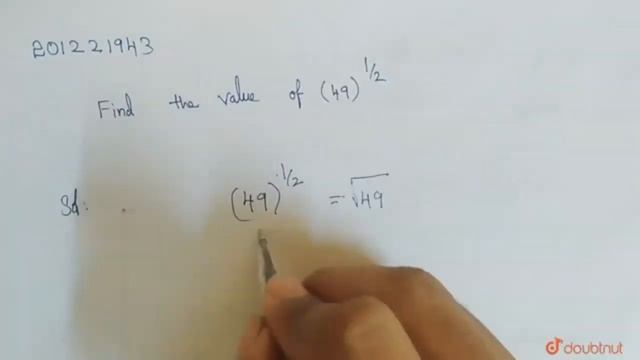 201221943
Find the value of (49)^1/2
Sol: (49)^1/2 = √49
doubtnut